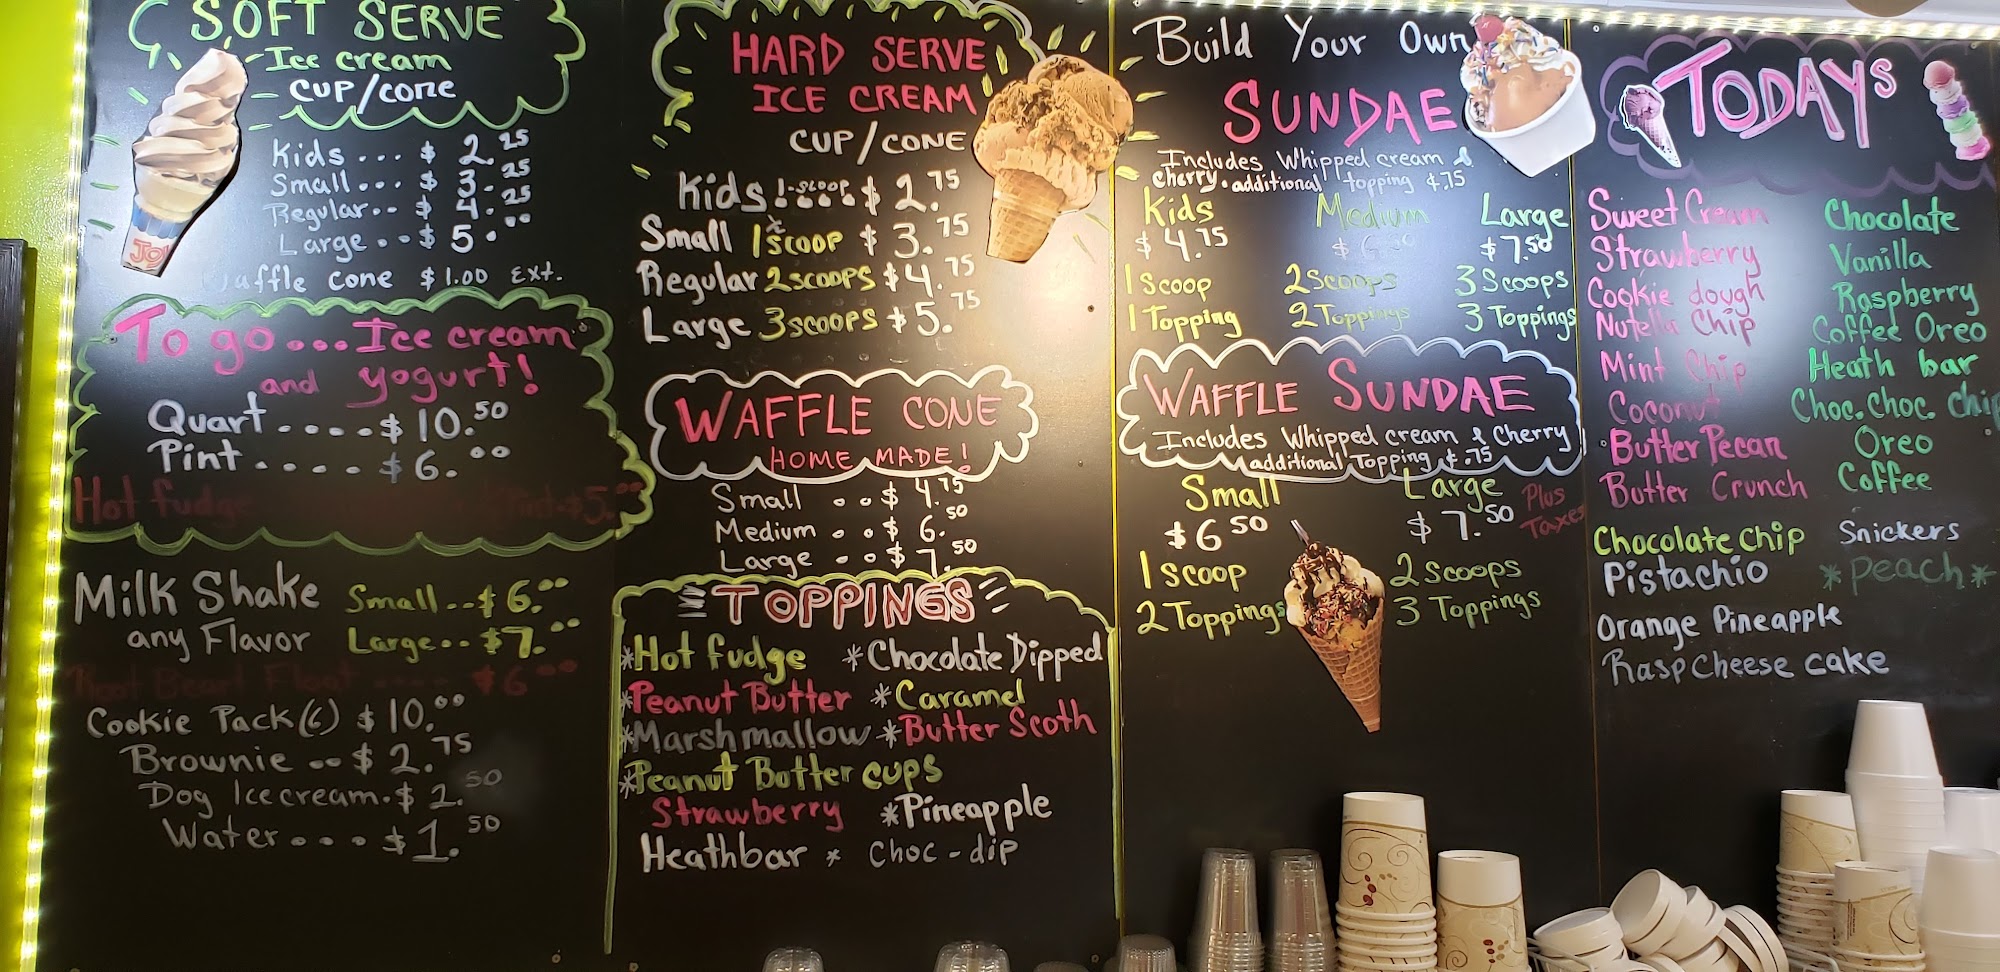 SOFT SERVE
Ice cream
CUP/cone
Kids ... $ 2.25
Small... $ 3.25
Regular.. $ 4.25
Large .. $ 5.00
waffle cone $1.00 Ext.
JOY
To go... Ice cream
and yogurt!
Quart ..... $ 10.50
Pint ..... $ 6.00
Hot fudge
$5.00
Milk Shake Small .. $ 6.00
any Flavor Large .. $ 7.00
Root Bear Float .... $ 6.00
Cookie Pack (6) $ 10.00
Brownie .. $ 2.75
Dog Ice cream . $ 2.50
Water .... $ 1.50
HARD SERVE
ICE CREAM
CUP/CONE
Kids 1-scoop $ 2.75
Small 1 scoop $ 3.75
Regular 2 scoops $ 4.75
Large 3 scoops $ 5.75
WAFFLE CONE
HOME MADE!
Small .. $ 4.75
Medium .. $ 6.50
Large .. $ 7.50
TOPPINGS
*Hot fudge *Chocolate Dipped
*Peanut Butter *Caramel
*Marshmallow *Butter Scoth
*Peanut Butter cups
Strawberry *Pineapple
Heathbar * choc-dip
Build Your Own
SUNDAE
Includes Whipped cream &
cherry. additional topping $.75
Kids Medium Large
$ 4.75 $ 6.50 $ 7.50
1 Scoop 2 Scoops 3 Scoops
1 Topping 2 Toppings 3 Toppings
WAFFLE SUNDAE
Includes Whipped cream & Cherry
additional Topping $.75
Small Large Plus
$ 6.50 $ 7.50 Taxes
1 scoop 2 scoops
2 Toppings 3 Toppings
TODAYs
Sweet Cream Chocolate
Strawberry Vanilla
Cookie dough Raspberry
Nutella Chip Coffee Oreo
Mint Chip Heath bar
Coconut Choc. Choc. chip
Butter Pecan Oreo
Butter Crunch Coffee
Chocolate chip Snickers
Pistachio *peach*
Orange Pineapple
Rasp cheese cake